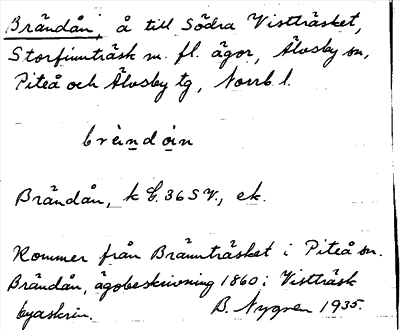 Brändån, å till Södra Vistträsket,
Storfinnträsk m. fl. ägor, Älvsby sn,
Piteå och Älvsby tg, Norrb. l.
brändån
Brändån, k E. 36 SV., ek.
Kommer från Brännträsket i Piteå sn.
Brändån, ägobeskrivning 1860 i Vistträsk
byaskrin. B. Nygren 1935.